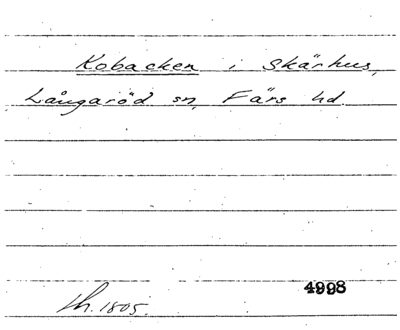 Kobacken i Skärhus,
Långaröd sn, Färs hd.
4998
th. 1805.